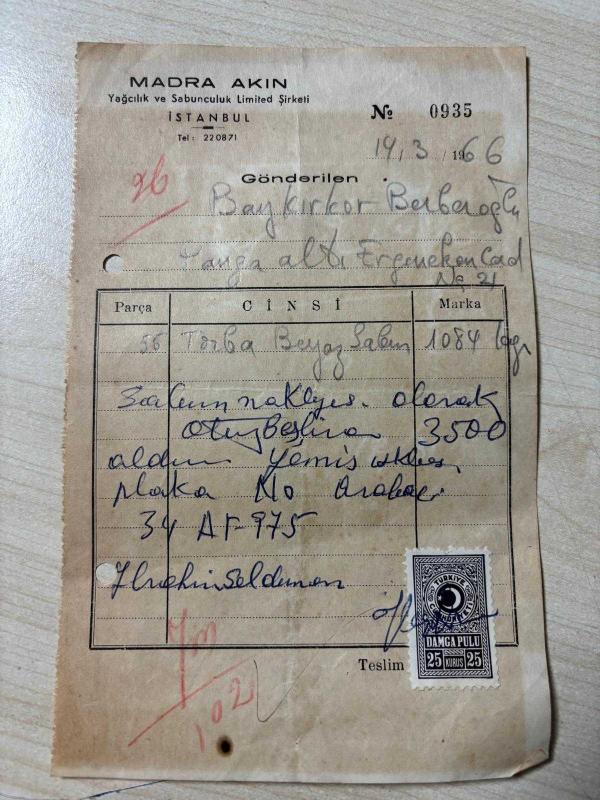 MADRA AKIN
Yağcılık ve Sabunculuk Limited Şirketi
İSTANBUL
Tel: 220871
№ 0935
19.3/1966
26
Gönderilen
Baykırkor Berberoğlu
altı Ergenekon Cad
No 21
Parça CİNSİ Marka
56 Torba Beyaz Sabun 1084 kg
Sabun nakliyesi olarak
otuzbeşlira 3500
aldım Yemiş iskelesi
plaka No Arabacı
34 AF 975
İbrahim
TÜRKİYE CUMHURİYETİ
DAMGA PULU
25 KURUŞ 25
Teslim
102